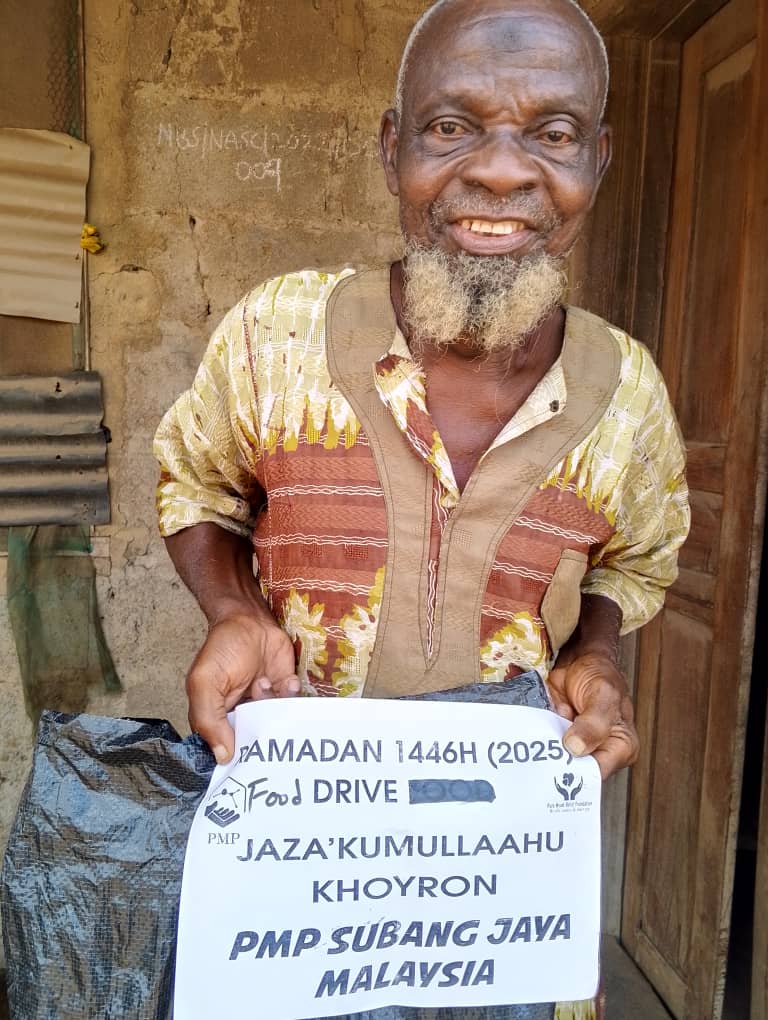 009
RAMADAN 1446H (2025)
Food DRIVE
PMP
JAZA'KUMULLAAHU
KHOYRON
PMP SUBANG JAYA
MALAYSIA